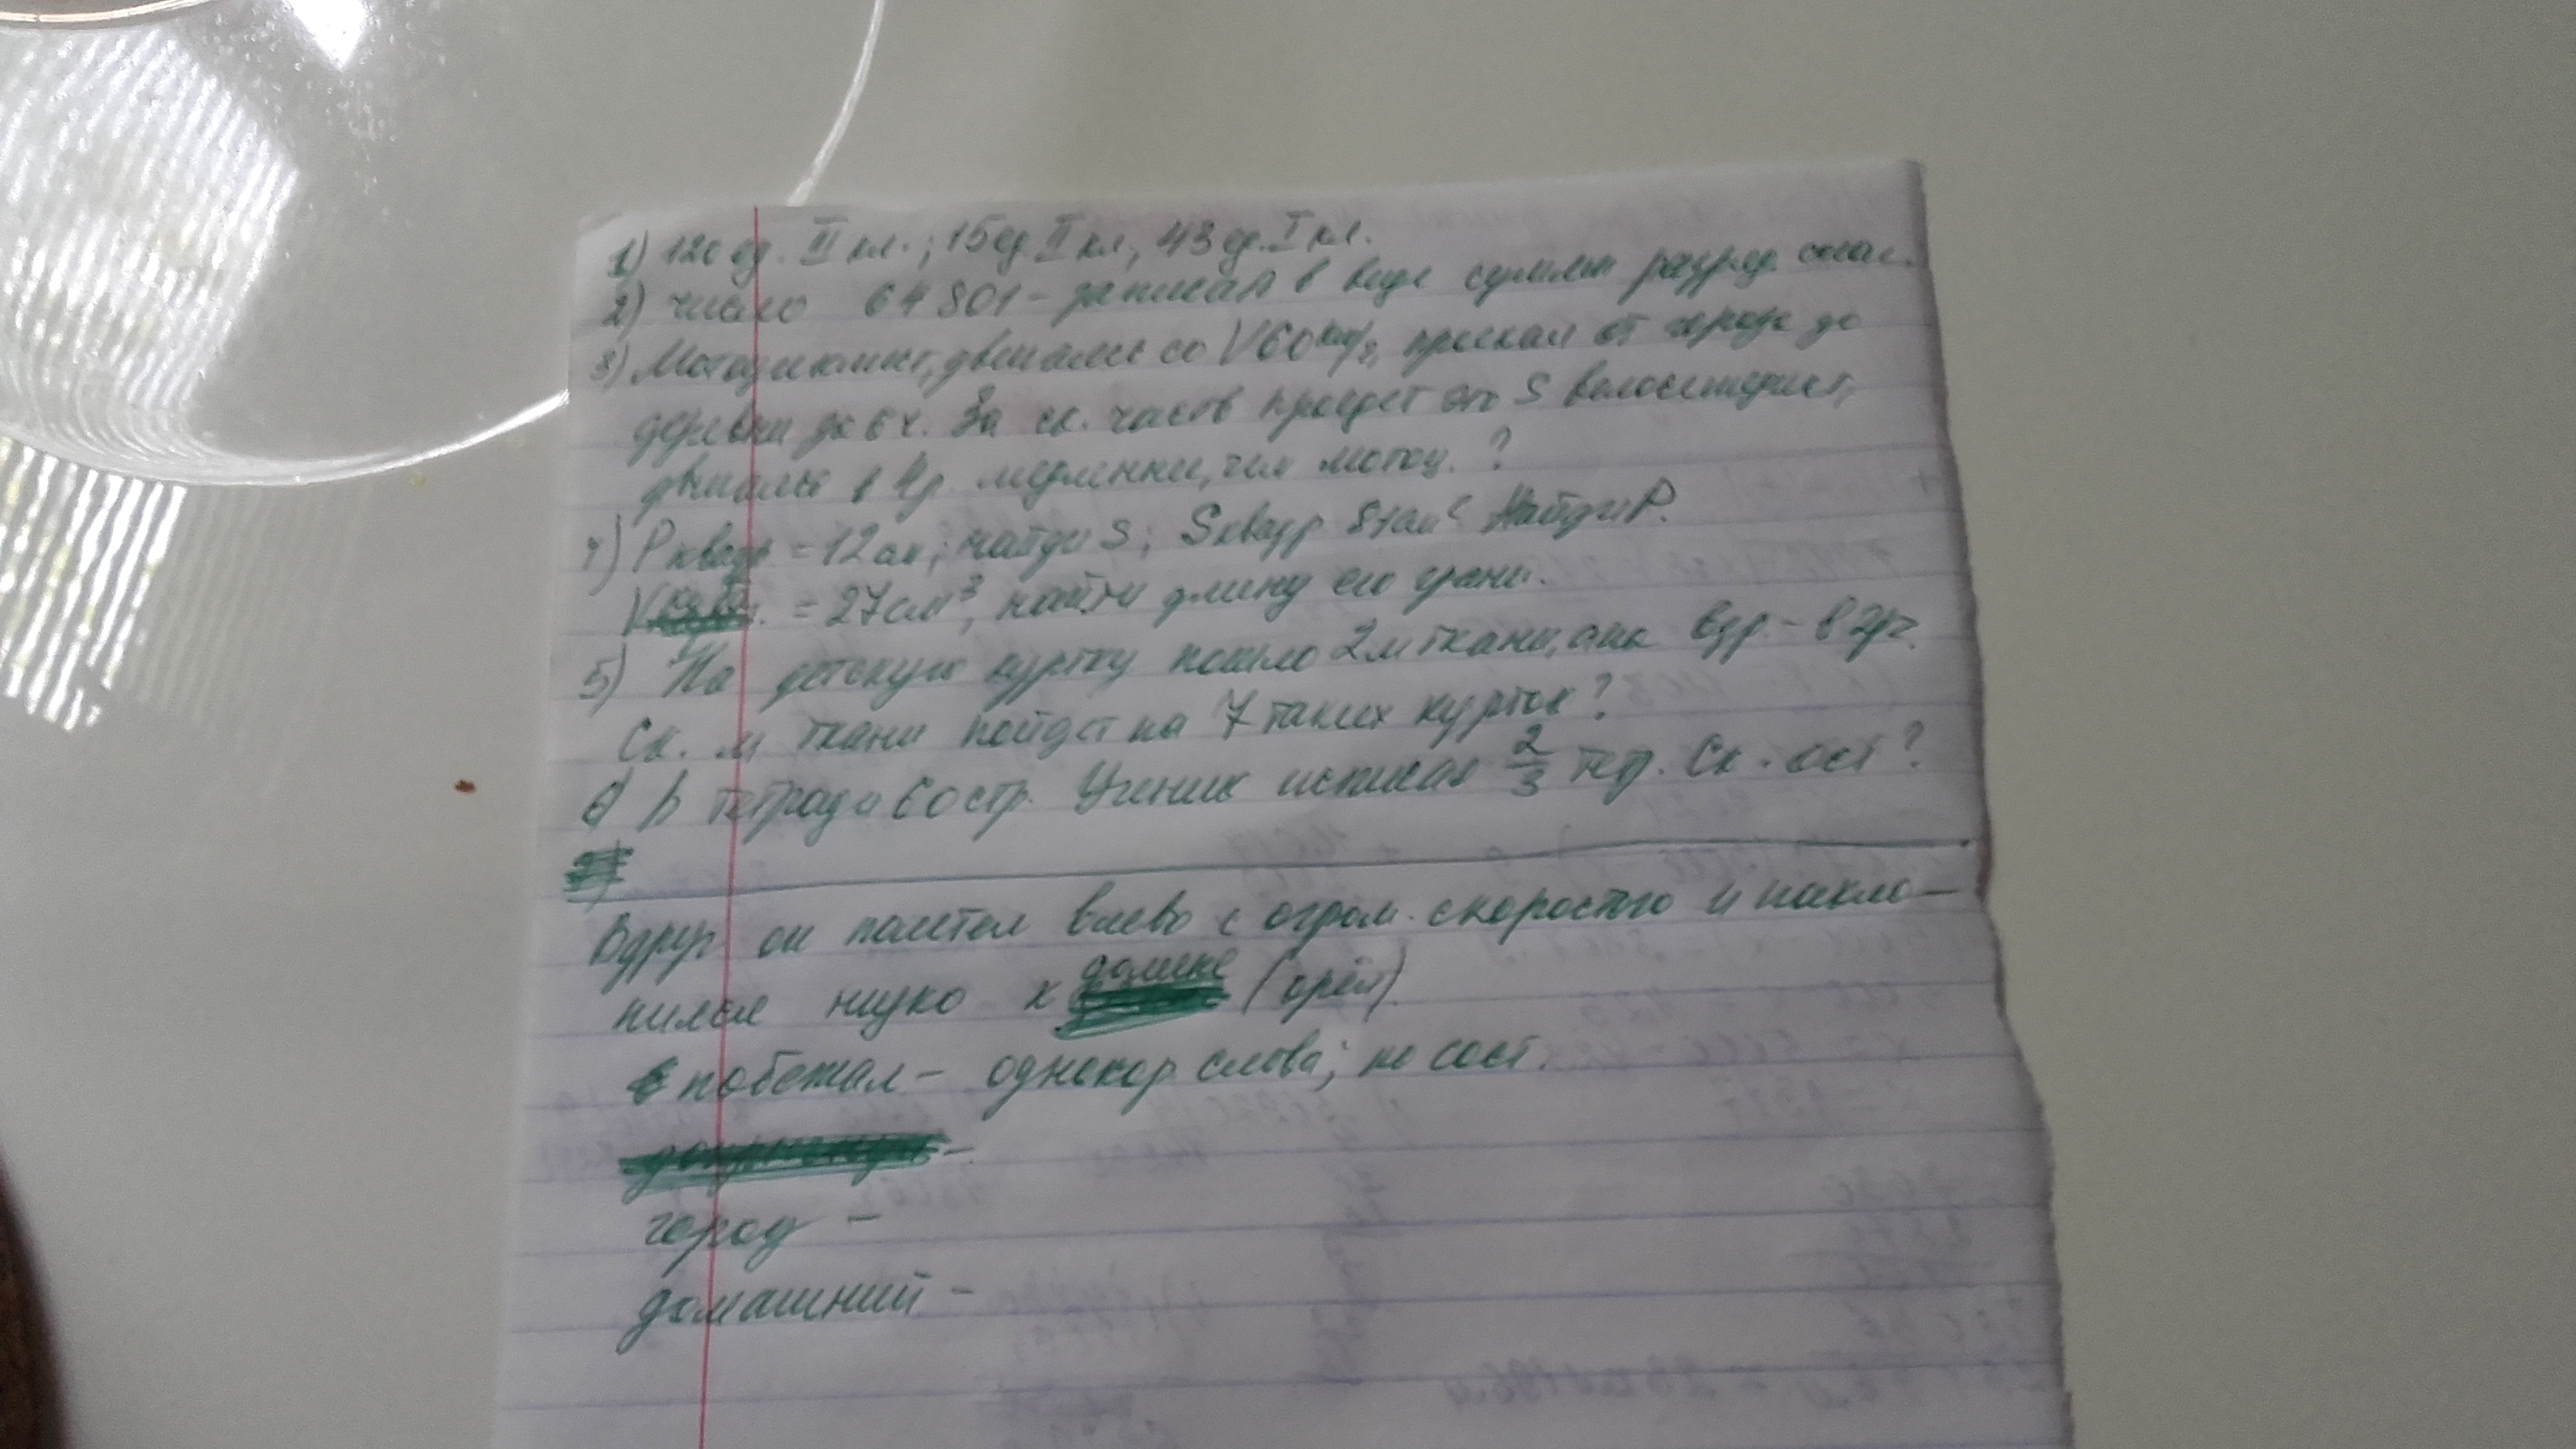 1) 120 ед. III кл.; 15 ед. II кл, 43 ед. I кл.
2) число 64 801 - записал в виде суммы разряд. слаг.
3) Мотоциклист, двигаясь со V 60 км/ч, проехал от города до
деревни за 6 ч. За ск. часов проедет это S велосипедист,
двигаясь в 4 р. медленнее, чем мотоц. ?
4) P квадр = 12 см; найди S; S квадр 81 см² Найди P.
V куба = 27 см³, найти длину его грани.
5) На детскую куртку пошло 2 м ткани, а на взр - в 2 р >.
Ск. м ткани пойдет на 7 таких курток?
6) В тетради 60 стр. Ученик исписал 2/3 тетр. Ск. ост?
Вдруг он полетел влево с огром. скоростью и накло-
нился низко к долине (орёл)
побежал - однокор слова; по сост.
город -
домашний -